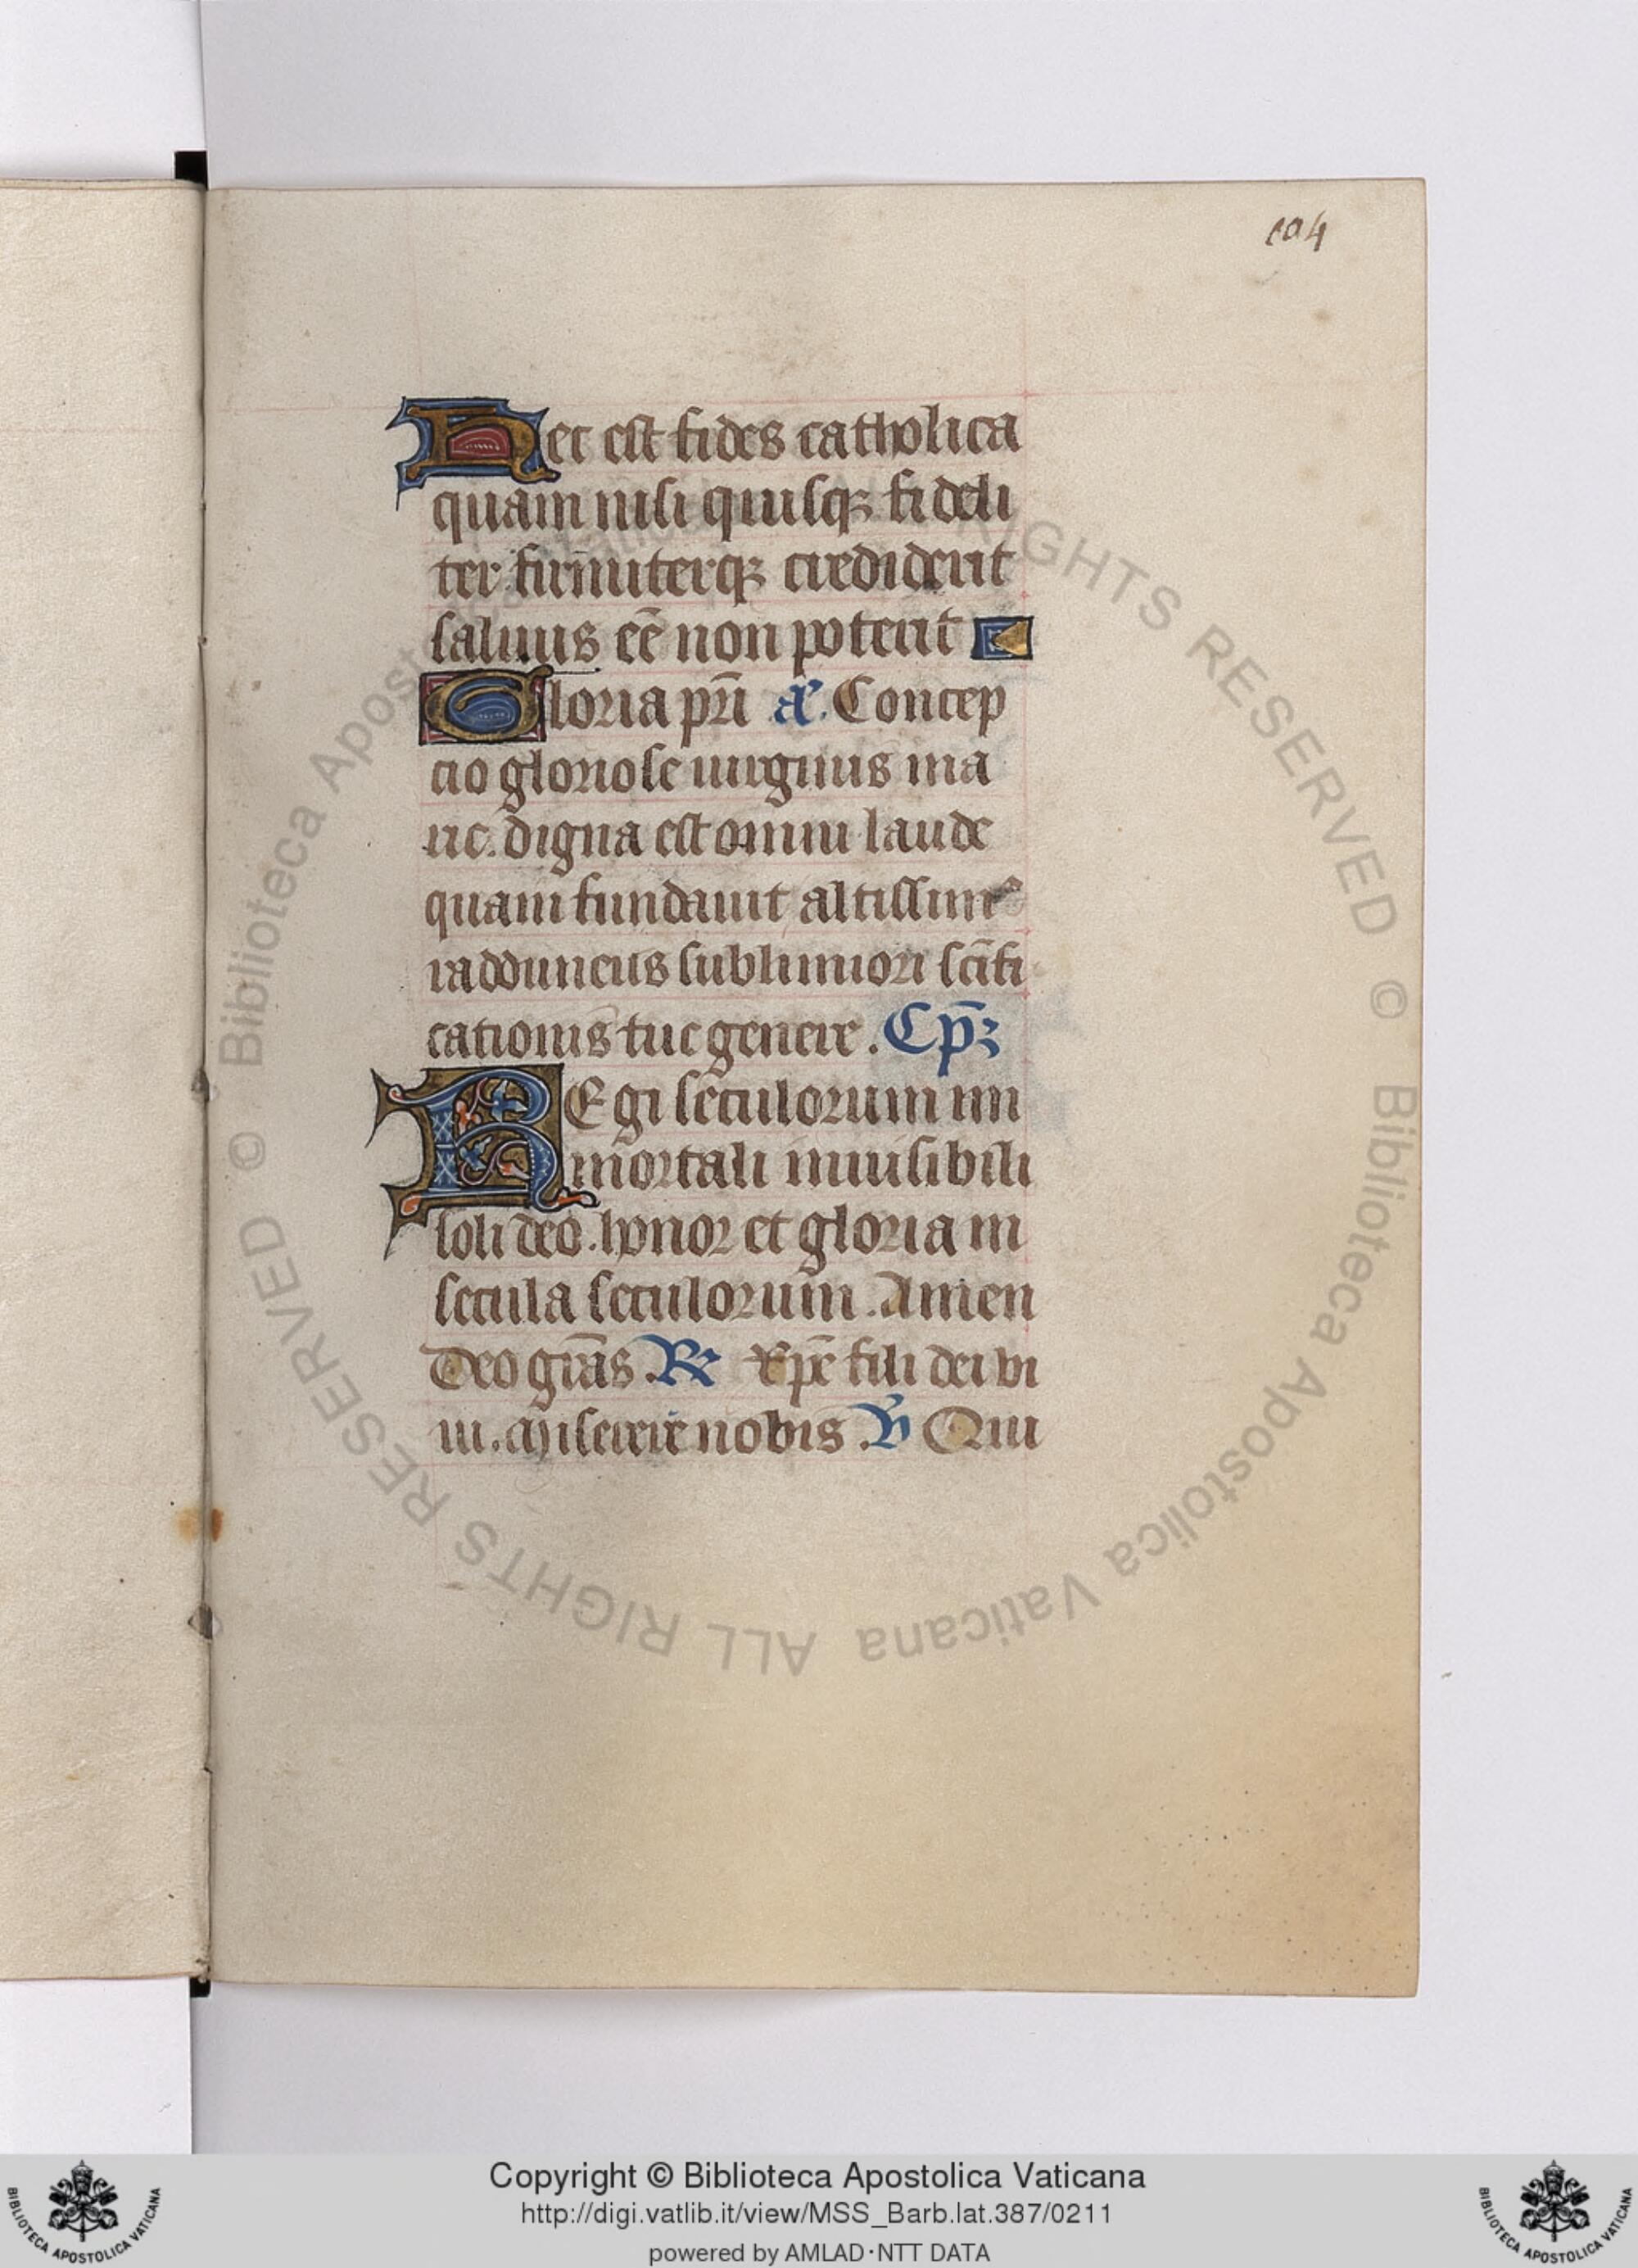 104
Hec est fides catholica
quam nisi quisqꝫ fideli
ter firmiterqꝫ crediderit
saluus eē non poterit
Gloria pr̄i a᷒. Concep
cio gloriose uirginis ma
rie. digna est omni laude
quam fundauit altissimꝰ
sublimiori sc̄ifi
cationis tue genere. Cp̄ꝫ
REgi seculorum im
mortali inuisibili
soli deo. honor et gloria in
secula seculorum. Amen
Deo gr̄as. ℞ xp̄e fili dei vi
ui. Miserere nobis. ℣ Qui
© Biblioteca Apostolica Vaticana ALL RIGHTS RESERVED © Biblioteca Apostolica Vaticana ALL RIGHTS RESERVED
Copyright © Biblioteca Apostolica Vaticana
http://digi.vatlib.it/view/MSS_Barb.lat.387/0211
powered by AMLAD·NTT DATA
BIBLIOTECA APOSTOLICA VATICANA
BIBLIOTECA APOSTOLICA VATICANA